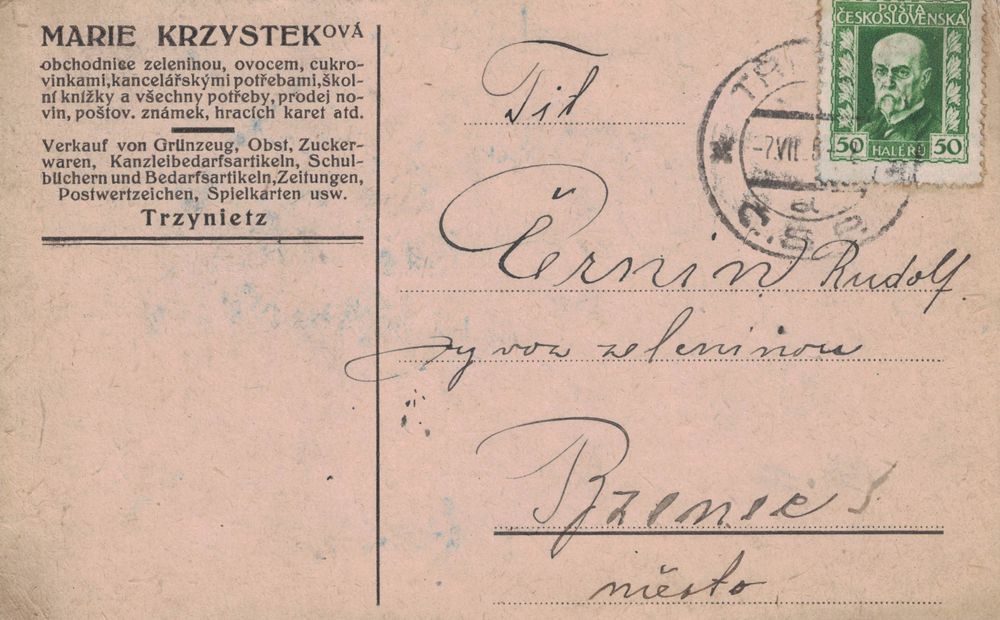 MARIE KRZYSTEKOVÁ
obchodnice zeleninou, ovocem, cukro-
vinkami, kancelářskými potřebami, škol-
ní knížky a všechny potřeby, prodej no-
vin, poštov. známek, hracích karet atd.
Verkauf von Grünzeug, Obst, Zucker-
waren, Kanzleibedarfsartikeln, Schul-
büchern und Bedarfsartikeln, Zeitungen,
Postwertzeichen, Spielkarten usw.
Trzynietz
POŠTA
ČESKOSLOVENSKÁ
50 HALÉŘŮ 50
-7.VII.
Tit
Černin Rudolf.
vyvoz zeleninou
Bzenec
město